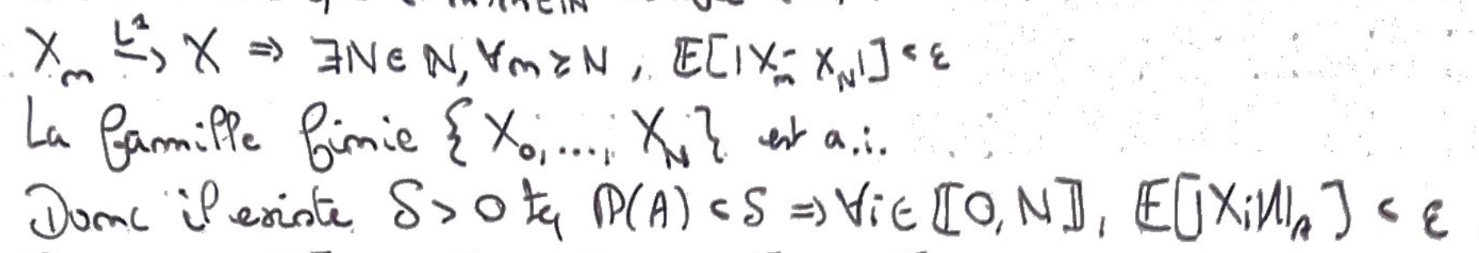 X_n L¹→ X ⇒ ∃N ∈ ℕ, ∀n ≥ N, 𝔼[|X_n - X_N|] < ε
La famille finie {X₀, ..., X_N} est a.i.
Donc il existe δ > 0 tq ℙ(A) < δ ⇒ ∀i ∈ ⟦0, N⟧, 𝔼[|X_i|𝟙_A] < ε